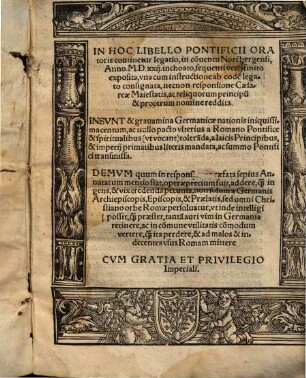 IN HOC LIBELLO PONTIFICII ORA
toris continetur legatio, in cōuentu Norebergensi,
Anno. M.D. xxij. inchoato, sequenti vero finito
exposita, vna cum instructione ab eodē lega
to consignata, necnon responsione Cæsa
reæ Maiestatis, ac reliquorum principū
& procerum nomine reddita.
INSVNT & grauamina Germanicæ nationis iniquissi
ma centum, ac nullo pacto vlterius a Romano Pontifice
& spiritualibus (vt vocant) tolerāda, a laicis Principibus,
& imperij primatibus literis mandata, ac summo Pontifi
ci transmissa.
DEMVM quum in respons. præfata sepius An
natarum mentio fiat, operæprecium fuit, addere, ꝗ̄ in
gens, & vix credenda pecunia, a Germanis
Archiepiscopis, Episcopis, & Prælatis, sed omni Christi
ano orbe Romæ persoluatur, vt inde intelligi
possit, ꝗ̄ præstet, tantā auri vim in Germania
retinere, ac in cōmune vtilitatis cōmodum
vertere, ꝗ̄ ita perdere, & ad malos & in
decentes vsus Romam mittere
CVM GRATIA ET PRIVILEGIO
Imperiali.